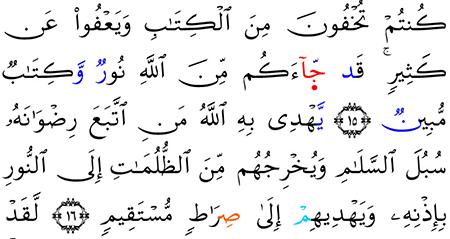 كُنتُمْ تُخْفُونَ مِنَ ٱلْكِتَٰبِ وَيَعْفُوا۟ عَن
كَثِيرٍۢ ۚ قَد جَّآءَكُم مِّنَ ٱللَّهِ نُورٌۭ وَّكِتَٰبٌۭ
مُّبِينٌۭ ﴿١٥﴾ يَّهْدِى بِهِ ٱللَّهُ مَنِ ٱتَّبَعَ رِضْوَٰنَهُۥ
سُبُلَ ٱلسَّلَٰمِ وَيُخْرِجُهُم مِّنَ ٱلظُّلُمَٰتِ إِلَى ٱلنُّورِ
بِإِذْنِهِۦ وَيَهْدِيهِمْ إِلَىٰ صِرَٰطٍۢ مُّسْتَقِيمٍۢ ﴿١٦﴾ لَّقَدْ